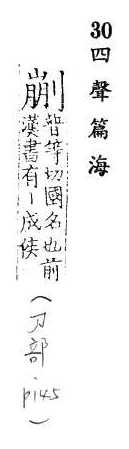 30四聲篇海
剻
普等切國名也前
漢書有丨成侯
(刀部·p145)